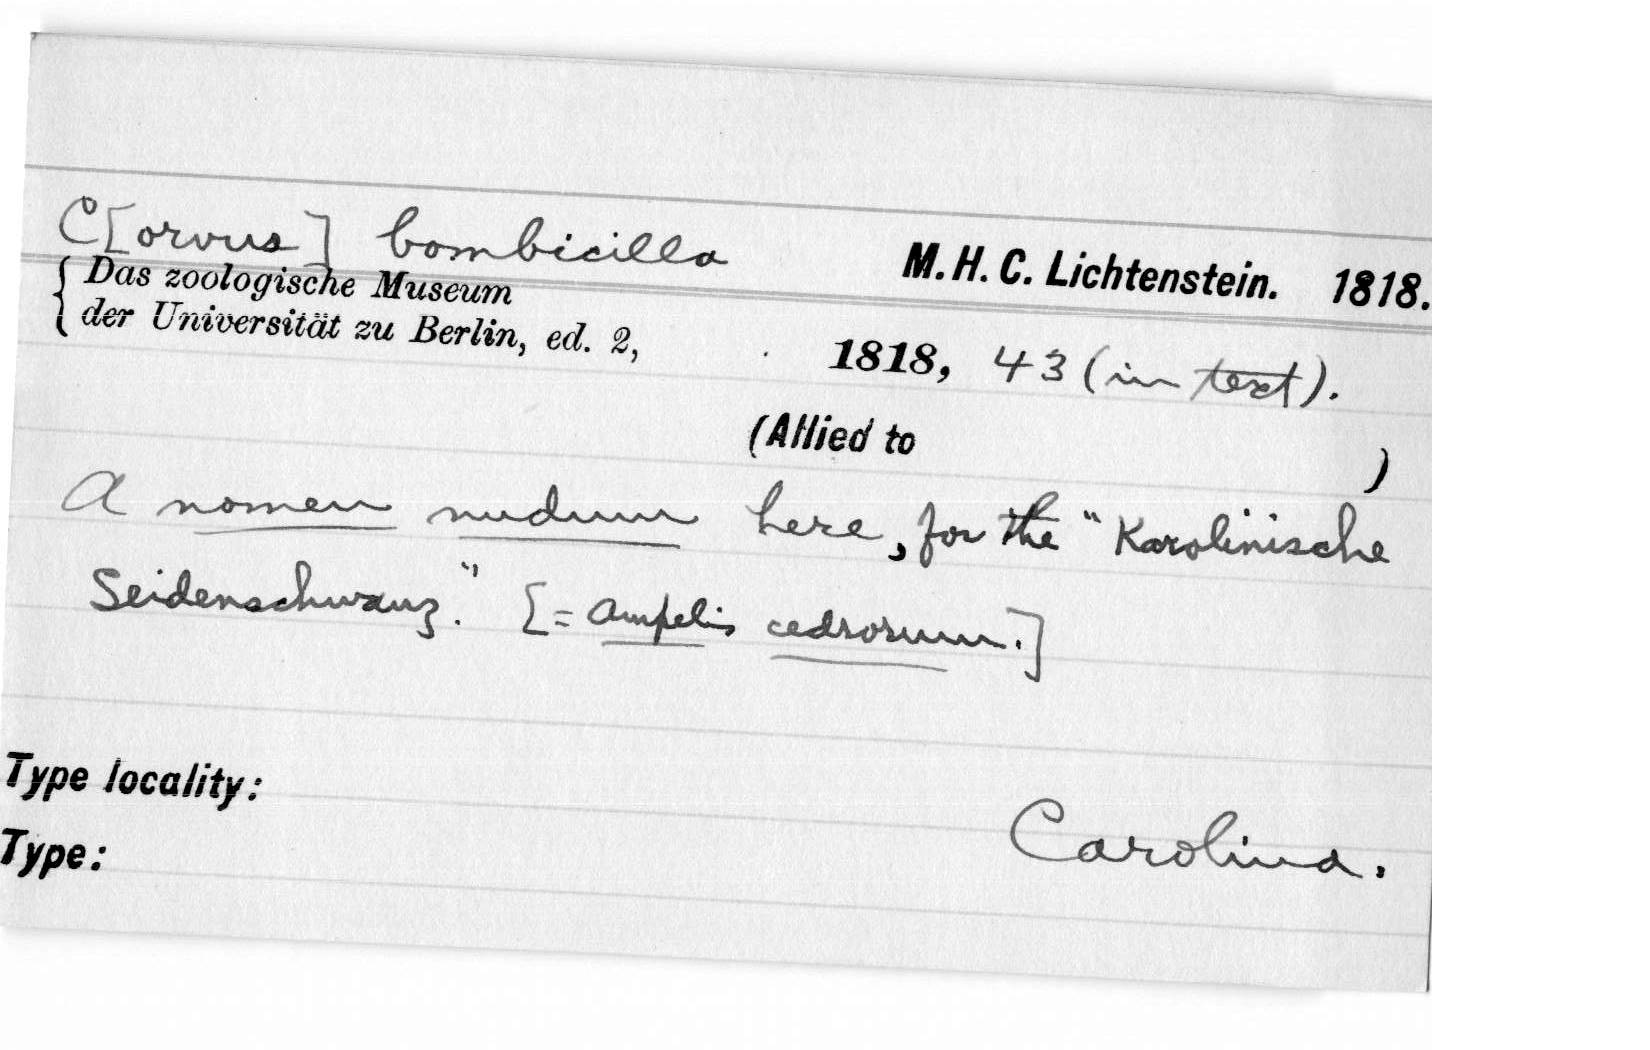 C[orvus] bombicilla
M. H. C. Lichtenstein. 1818.
{ Das zoologische Museum
der Universität zu Berlin, ed. 2, 1818, 43 (in text).
(Allied to )
A nomen nudum here, for the "Karolinische
Seidenschwanz." [= Ampelis cedrorum.]
Type locality:
Carolina.
Type: